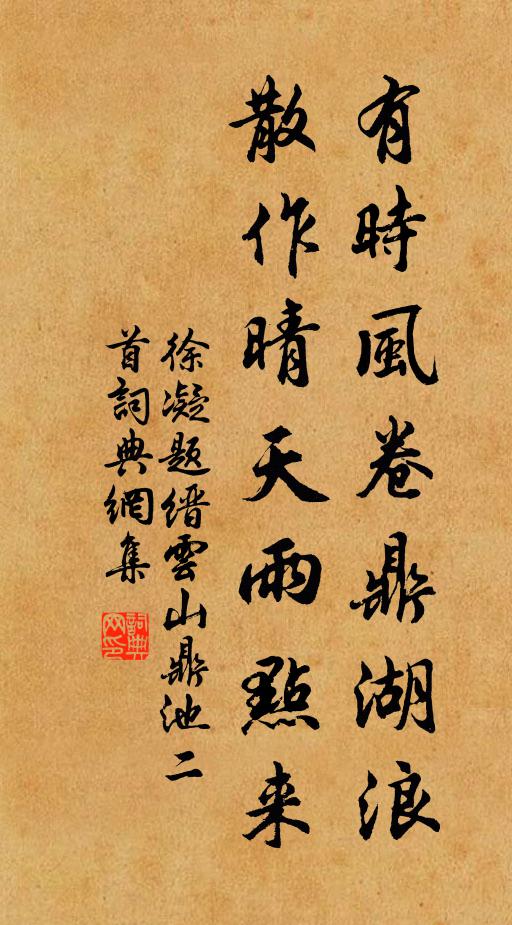 有時風卷鼎湖浪
散作晴天雨點来
徐凝题缙雲山鼎池二
首詞典網集
詞典
网印